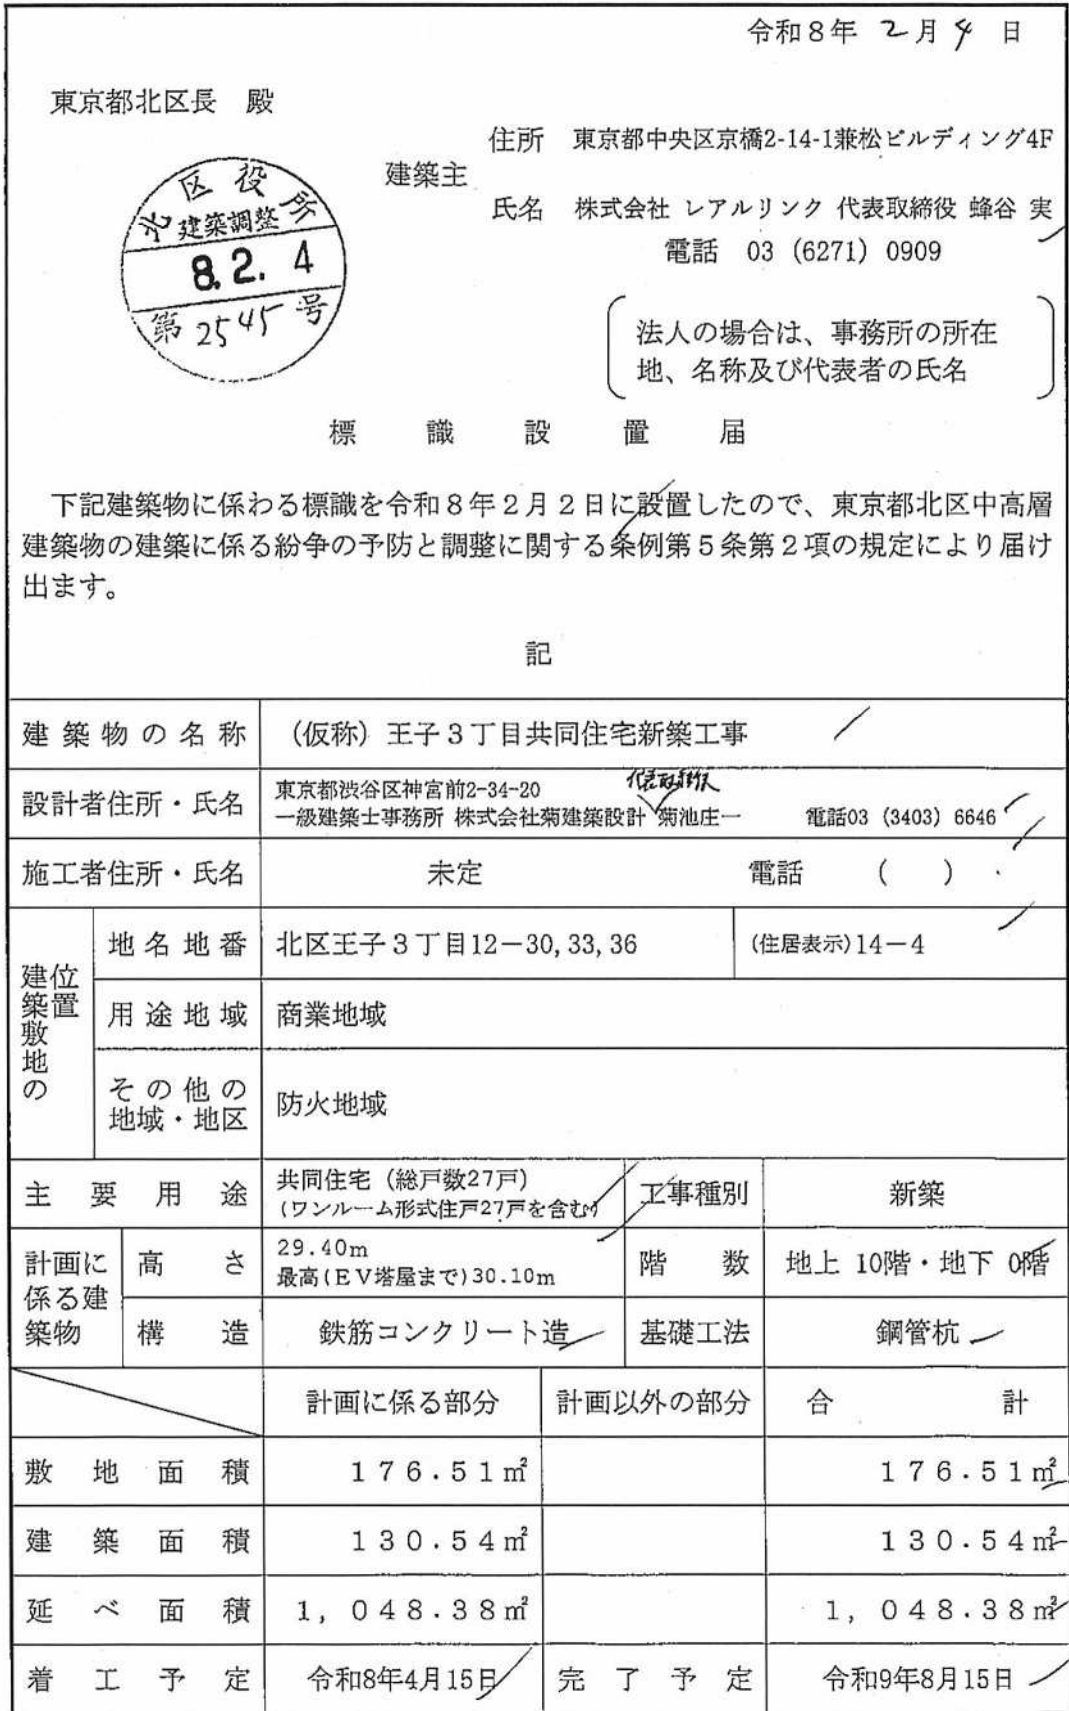 令和8年 2月4日
東京都北区長 殿
住所 東京都中央区京橋2-14-1兼松ビルディング4F
建築主
氏名 株式会社 レアルリンク 代表取締役 蜂谷 実
電話 03 (6271) 0909
北区役所
建築調整
8.2.4
第2545号
法人の場合は、事務所の所在
地、名称及び代表者の氏名
標識設置届
下記建築物に係わる標識を令和8年2月2日に設置したので、東京都北区中高層
建築物の建築に係る紛争の予防と調整に関する条例第5条第2項の規定により届け
出ます。
記
建築物の名称 (仮称) 王子3丁目共同住宅新築工事
設計者住所・氏名 東京都渋谷区神宮前2-34-20
代表取締役
一級建築士事務所 株式会社菊建築設計 菊池庄一 電話03 (3403) 6646
施工者住所・氏名 未定 電話 ( )
建築敷地の位置
地名地番 北区王子3丁目12-30,33,36 (住居表示)14-4
用途地域 商業地域
その他の
地域・地区 防火地域
主要用途 共同住宅 (総戸数27戸)
(ワンルーム形式住戸27戸を含む) 工事種別 新築
計画に
係る建
築物
高さ 29.40m
最高(EV塔屋まで)30.10m 階数 地上 10階・地下 0階
構造 鉄筋コンクリート造 基礎工法 鋼管杭
計画に係る部分 計画以外の部分 合計
敷地面積 176.51㎡ 176.51㎡
建築面積 130.54㎡ 130.54㎡
延べ面積 1,048.38㎡ 1,048.38㎡
着工予定 令和8年4月15日 完了予定 令和9年8月15日